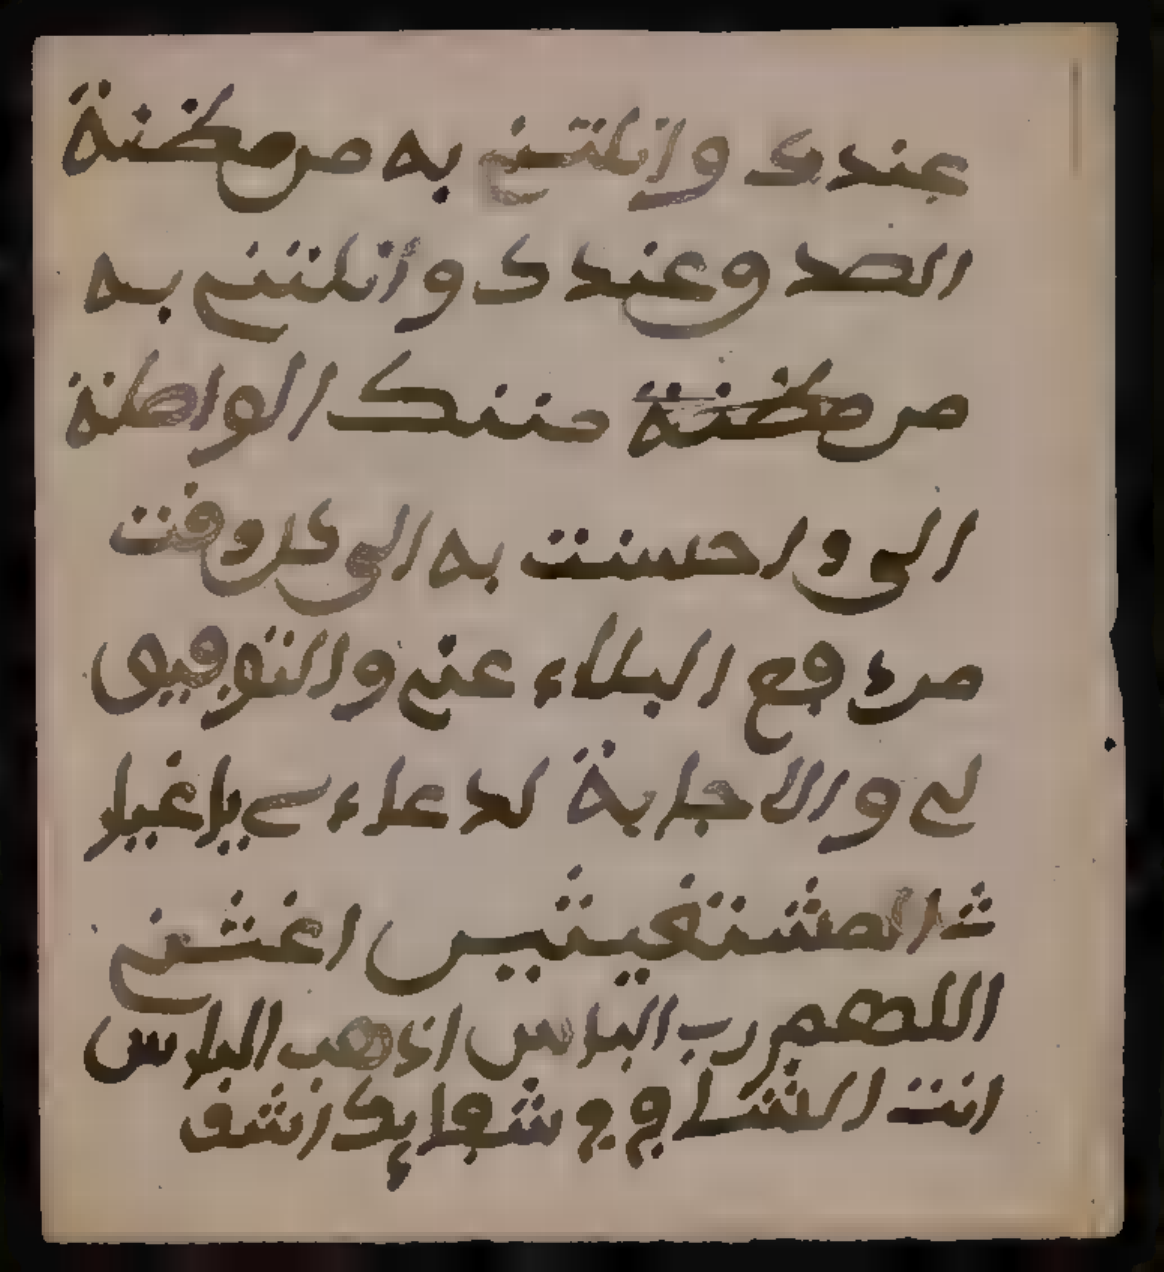 عندك وانلتني به من مظنة
الصد وعندك وانلتني به
من مظنة مننك الواصلة
الي واحسنت به الى كل وقت
من دفع البلاء عني والتوفيق
لي والاجابة لدعاءي يا غيا
ث المستغيثين اغثني
اللهم رب الباس اذهب الباس
انت الشافي شفايك اشف